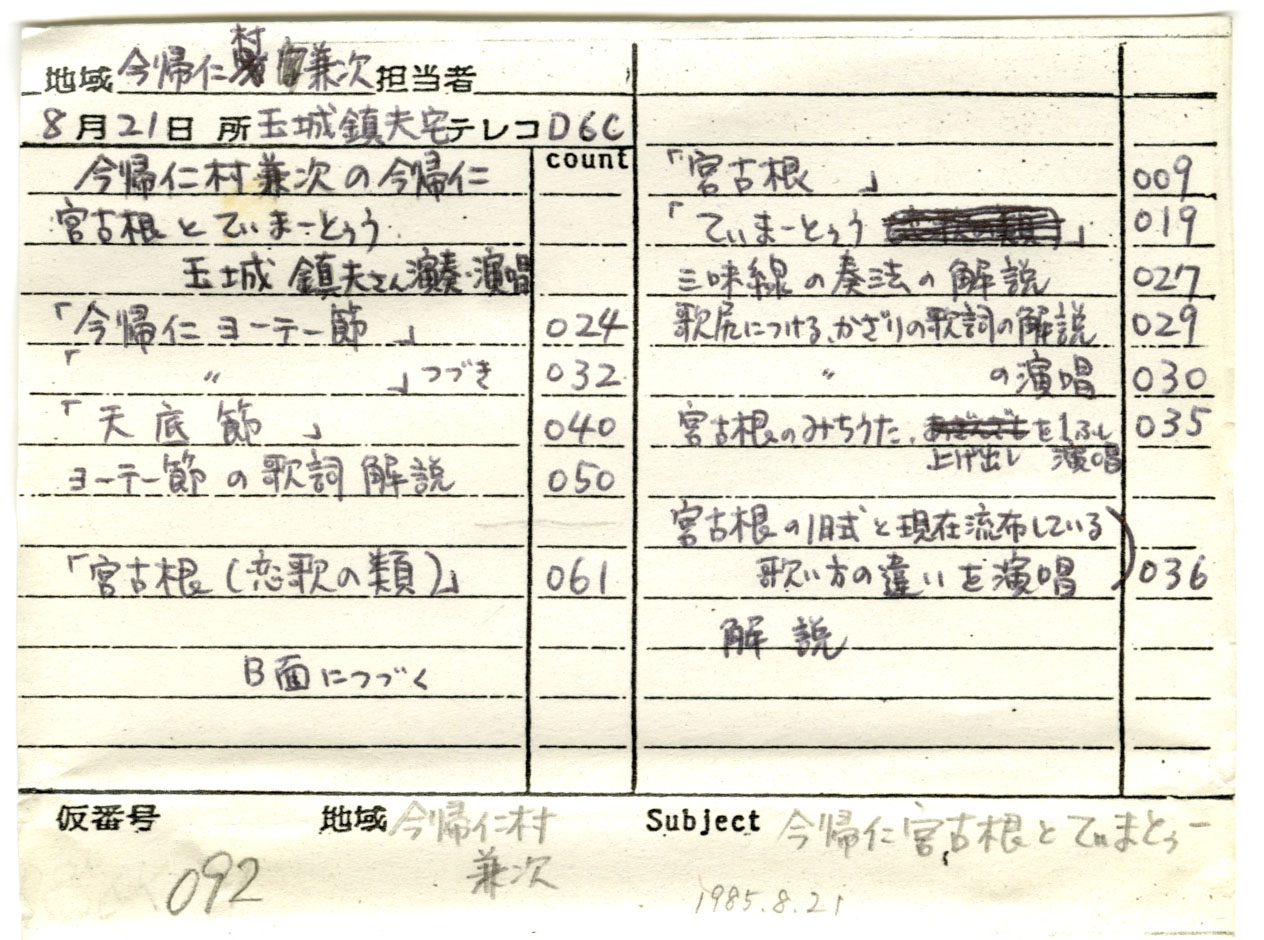 地域 今帰仁村 兼次 担当者
8月21日 所 玉城鎮夫宅 テレコ D6C
count
今帰仁村兼次の今帰仁
宮古根とてぃまーとぅう
玉城 鎮夫さん演奏・演唱
「今帰仁ヨーテー節 」 024
「 〃 」つづき 032
「天底節 」 040
ヨーテー節の歌詞解説 050
「宮古根(恋歌の類)」 061
B面につづく
「宮古根 」 009
「てぃまーとぅう 」 019
三味線の奏法の解説 027
歌尻につける、かざりの歌詞の解説 029
〃 の演唱 030
宮古根のみちうた、を1ふし 035
上げ出し 演唱
宮古根の旧式と現在流布している
歌い方の違いを演唱 036
解説
仮番号 092
地域 今帰仁村
兼次
Subject 今帰仁宮古根とてぃまとぅー
1985.8.21